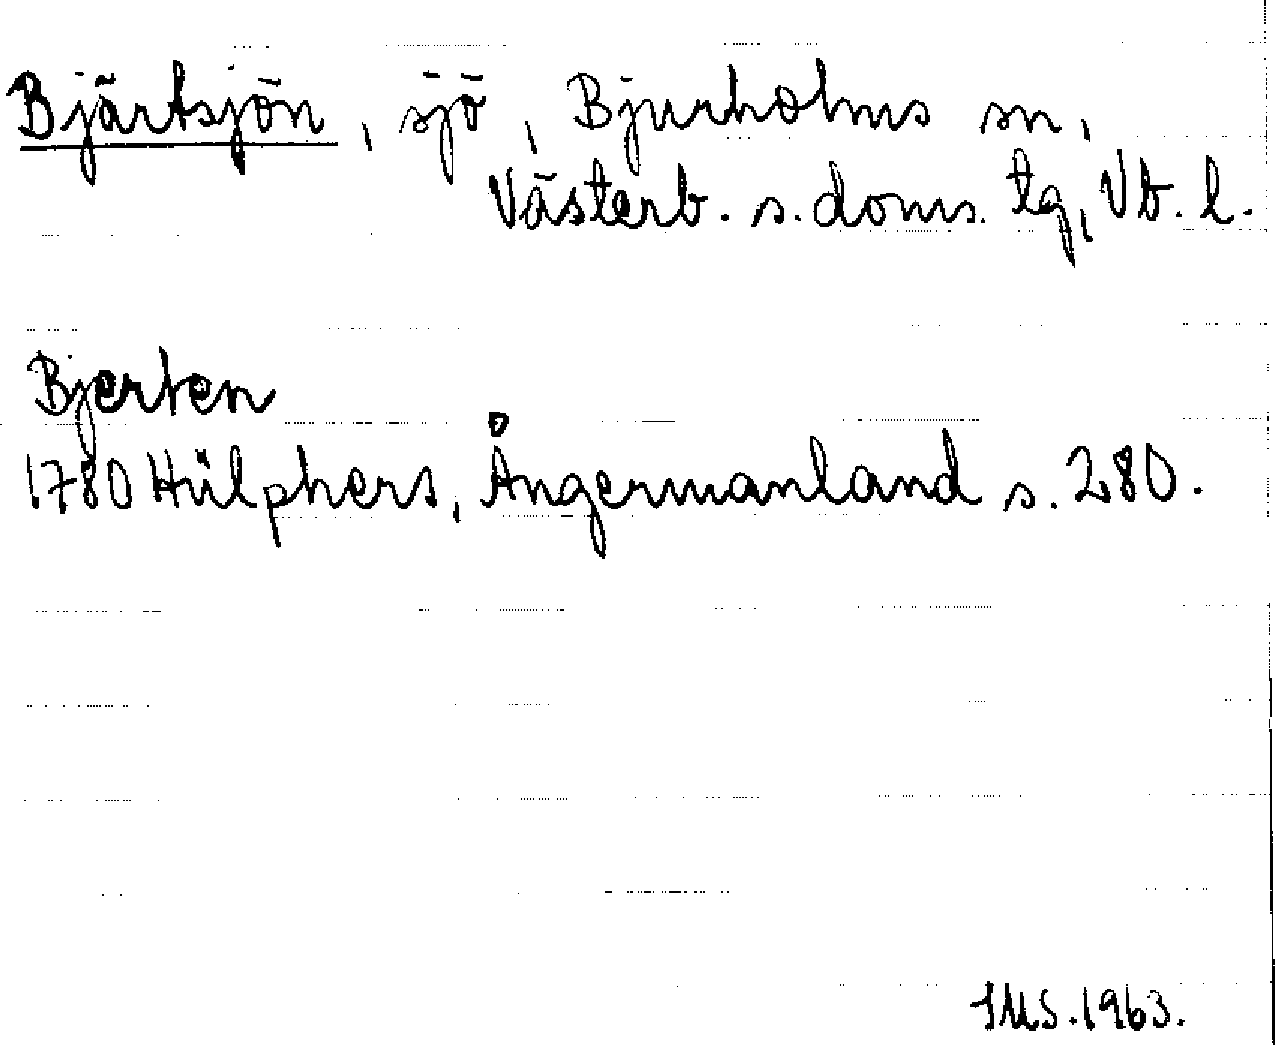 Bjärtsjön, sjö, Bjurholms sn,
Västerb. s. doms. tg, Vb. l.
Bjerten
1780 Hülphers, Ångermanland s. 280.
SMS. 1963.